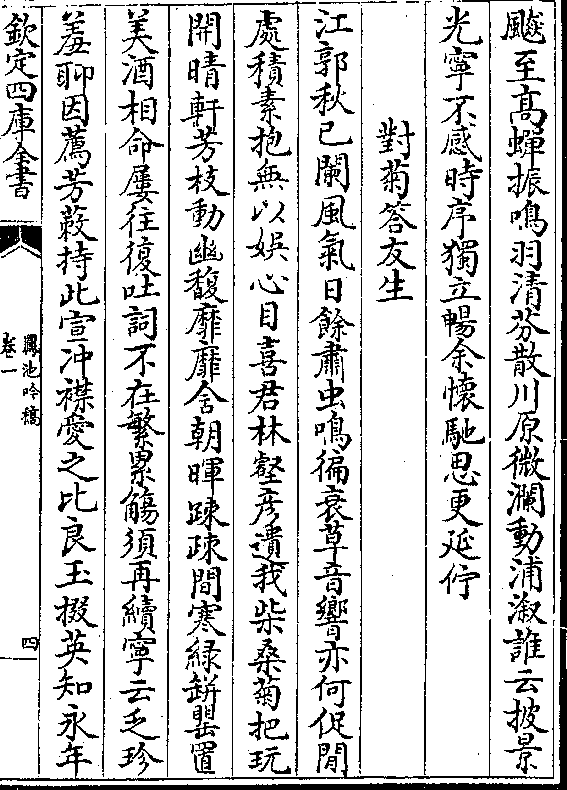 飈至高蟬振鳴羽清芬散川原微瀾動浦溆誰云披景
光寧不感時序獨立暢余懷馳思更延佇
對菊答友生
江郭秋已闌風氣日餘肅虫鳴徧衰草音響亦何促閒
處積素抱無以娛心目喜君林壑彦遺我柴桑菊把玩
開晴軒芳枝動幽馥靡靡含朝暉踈疎間寒緑缾罌置
美酒相命屢往復吐詞不在繁累觴須再續寧云乏珍
羞聊因薦芳蔌持此宣冲襟愛之比良玉掇英知永年
欽定四庫全書
鳳池吟稿
卷一
四